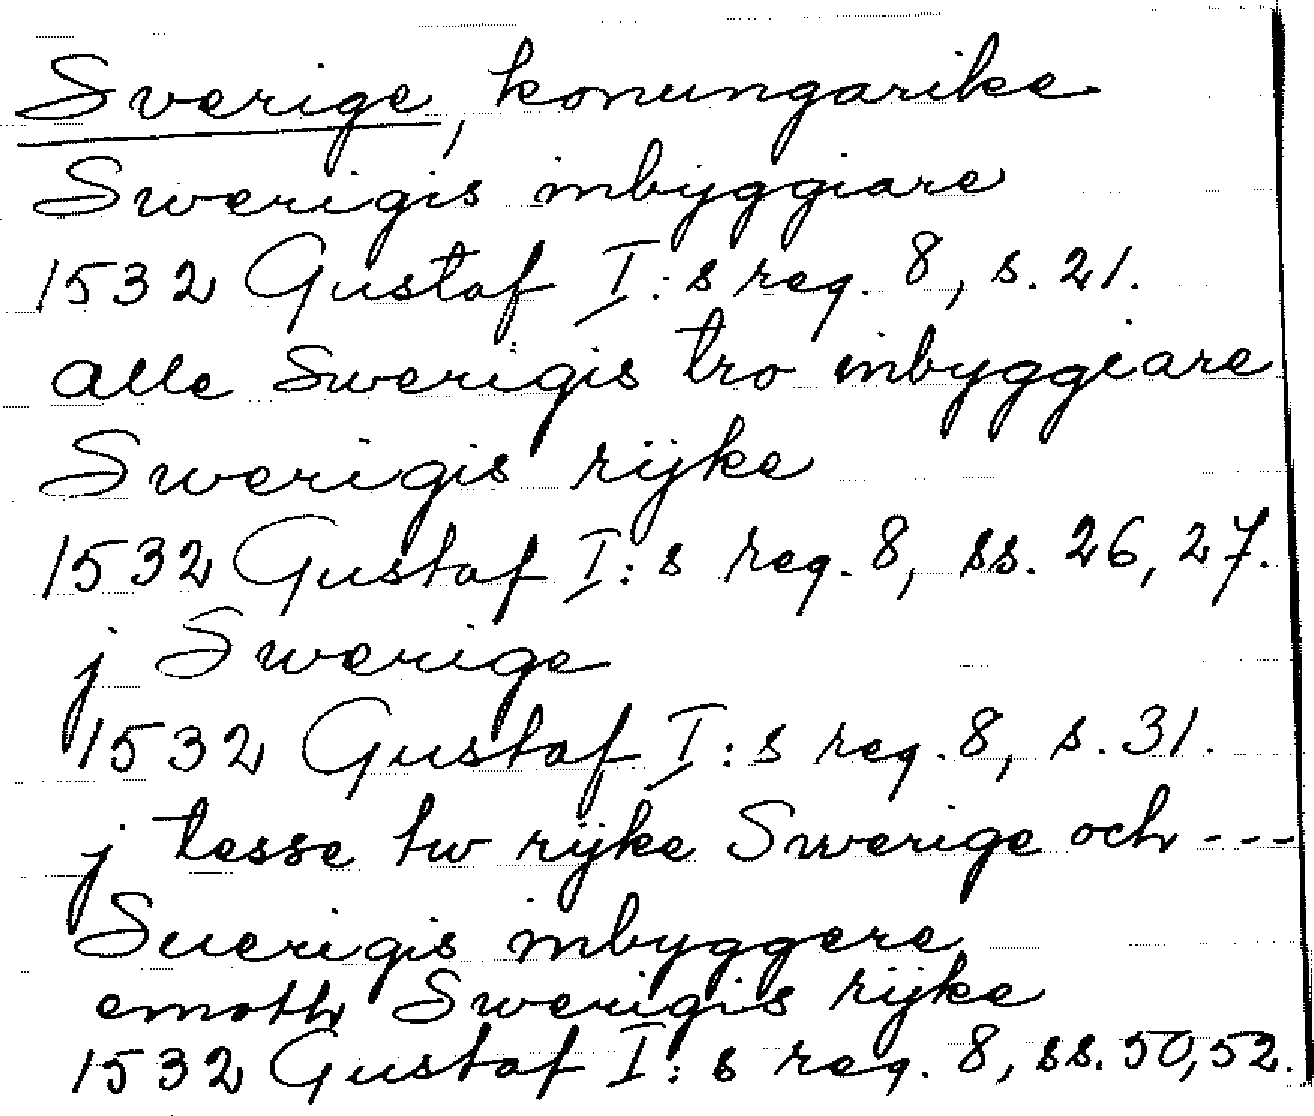 Sverige, konungarike
Swerigis inbyggiare
1532 Gustaf I:s reg. 8, s. 21.
alle Swerigis tro inbyggiare
Swerigis rijke
1532 Gustaf I:s reg. 8, ss. 26, 27.
j Swerige
1532 Gustaf I:s reg. 8, s. 31.
j tesse tw rijke Swerige och ---
Suerigis inbyggere
emoth Swerigis rijke
1532 Gustaf I:s reg. 8, ss. 50, 52.